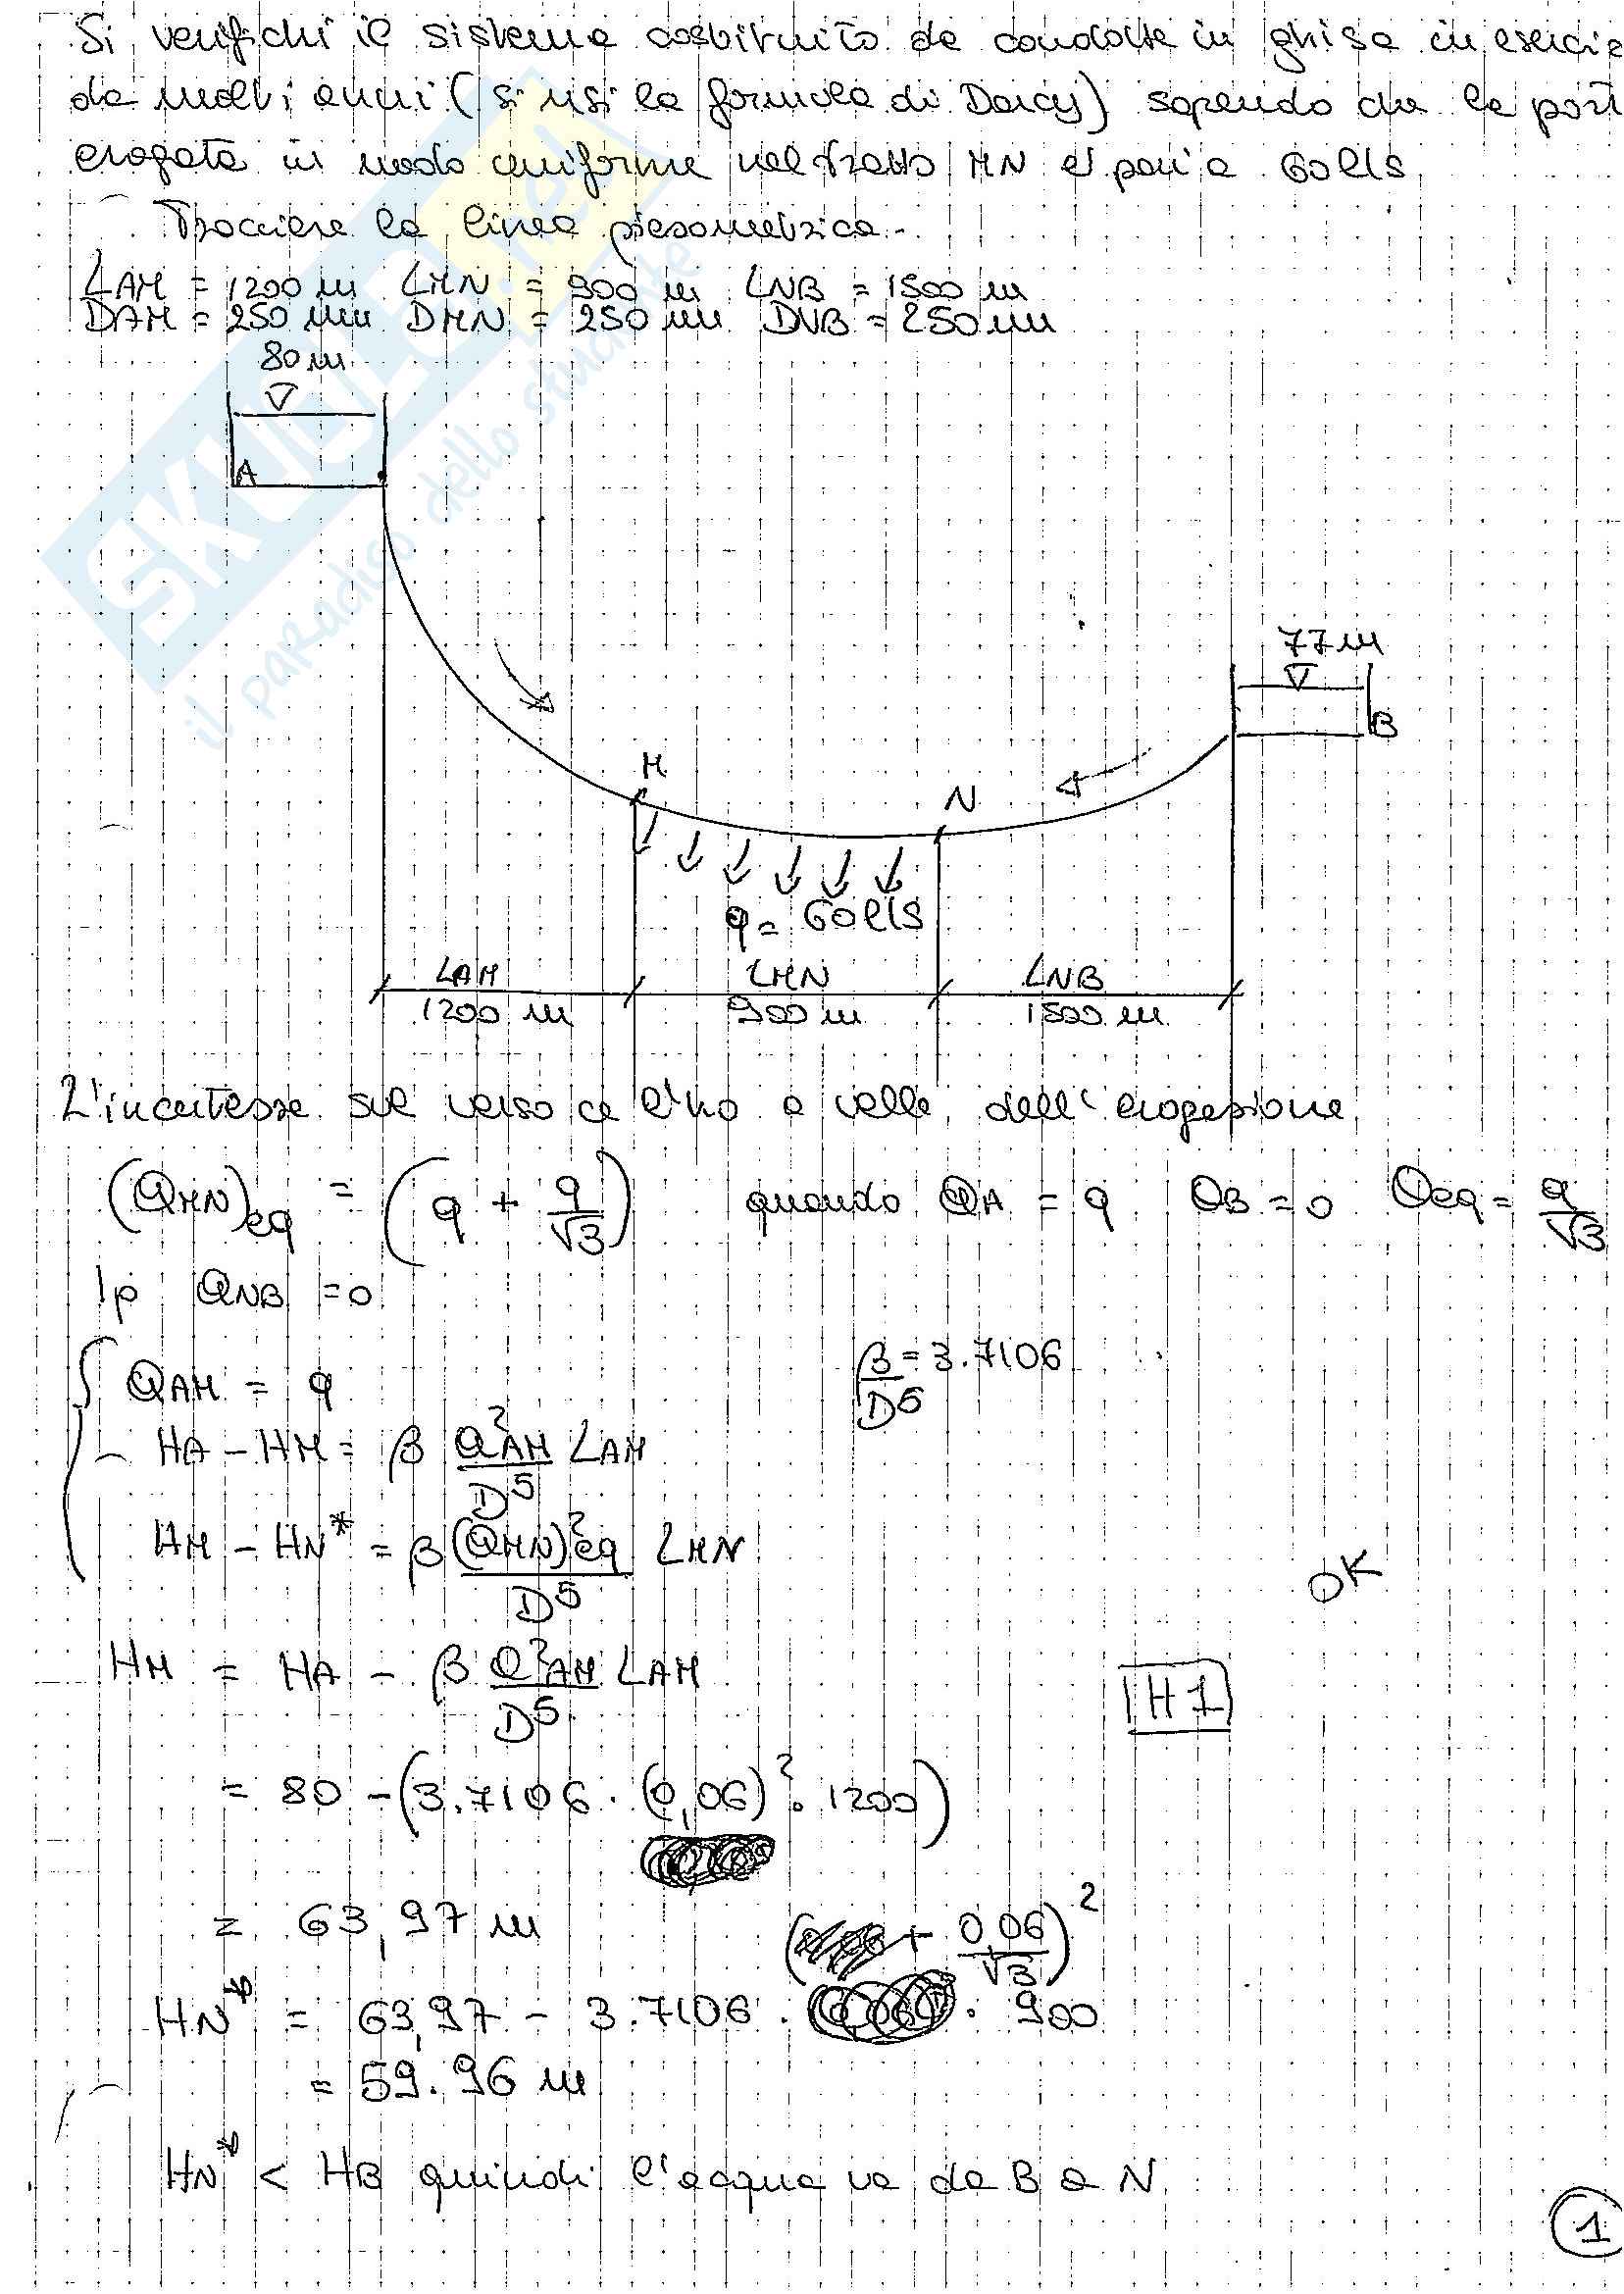 Si verifichi il sistema costituito da condotte in ghisa in esercizio
da molti anni (si usi la formula di Darcy) sapendo che la port
erogata in modo uniforme nel tratto MN è pari a 60 l/s
Tracciare la linea piezometrica.
LAM = 1200 m LMN = 900 m LNB = 1500 m
DAM = 250 mm DMN = 250 mm DNB = 250 mm
80 m
A
77 m
B
M
N
q = 60 l/s
LAM LMN LNB
1200 m 900 m 1500 m
L'incertezza sul verso ce l'ho a valle dell'erogazione
(QMN)eq = (q + q/√3) quando QA = q QB = 0 Qeq = q/√3
Ip QNB = 0
QAM = q
β/D⁵ = 3.7106
HA - HM = β Q²AM/D⁵ LAM
HM - HN* = β (QMN)²eq/D⁵ LMN
OK
HM = HA - β Q²AM/D⁵ LAM
H1
= 80 - (3.7106 · (0,06)² · 1200)
= 63,97 m
HN* = 63,97 - 3.7106 · (+ 0,06/√3)² · 900
= 59.96 m
HN* < HB quindi l'acqua va da B a N
1
SKUOLA.net
il paradiso dello studente